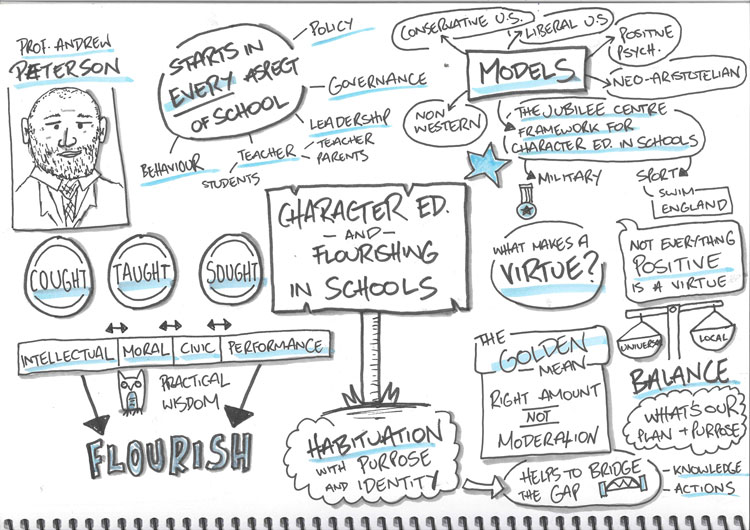 PROF. ANDREW
PETERSON
STARTS IN
EVERY ASPECT
OF SCHOOL
POLICY
GOVERNANCE
LEADERSHIP
TEACHER
PARENTS
TEACHER
STUDENTS
BEHAVIOUR
CONSERVATIVE U.S.
LIBERAL U.S
POSITIVE
PSYCH.
NEO-ARISTOTELIAN
MODELS
NON
WESTERN
THE JUBILEE CENTRE
FRAMEWORK FOR
CHARACTER ED. IN SCHOOLS
MILITARY
SPORT
SWIM
ENGLAND
CHARACTER ED.
- AND -
FLOURISHING
IN SCHOOLS
COUGHT
TAUGHT
SOUGHT
INTELLECTUAL
MORAL
CIVIC
PERFORMANCE
PRACTICAL
WISDOM
FLOURISH
WHAT MAKES A
VIRTUE?
NOT EVERYTHING
POSITIVE
IS A VIRTUE
UNIVERSAL
LOCAL
BALANCE
WHAT'S OUR
PLAN + PURPOSE
THE
GOLDEN
MEAN
RIGHT AMOUNT
NOT
MODERATION
HABITUATION
WITH PURPOSE
AND IDENTITY
HELPS TO BRIDGE
THE GAP
- KNOWLEDGE
- ACTIONS